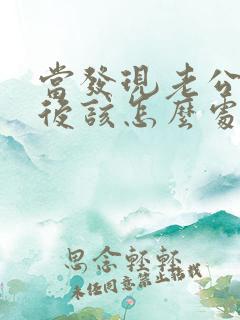 當發現老公
後該怎麼處
思念輕輕
未經同意禁止轉載